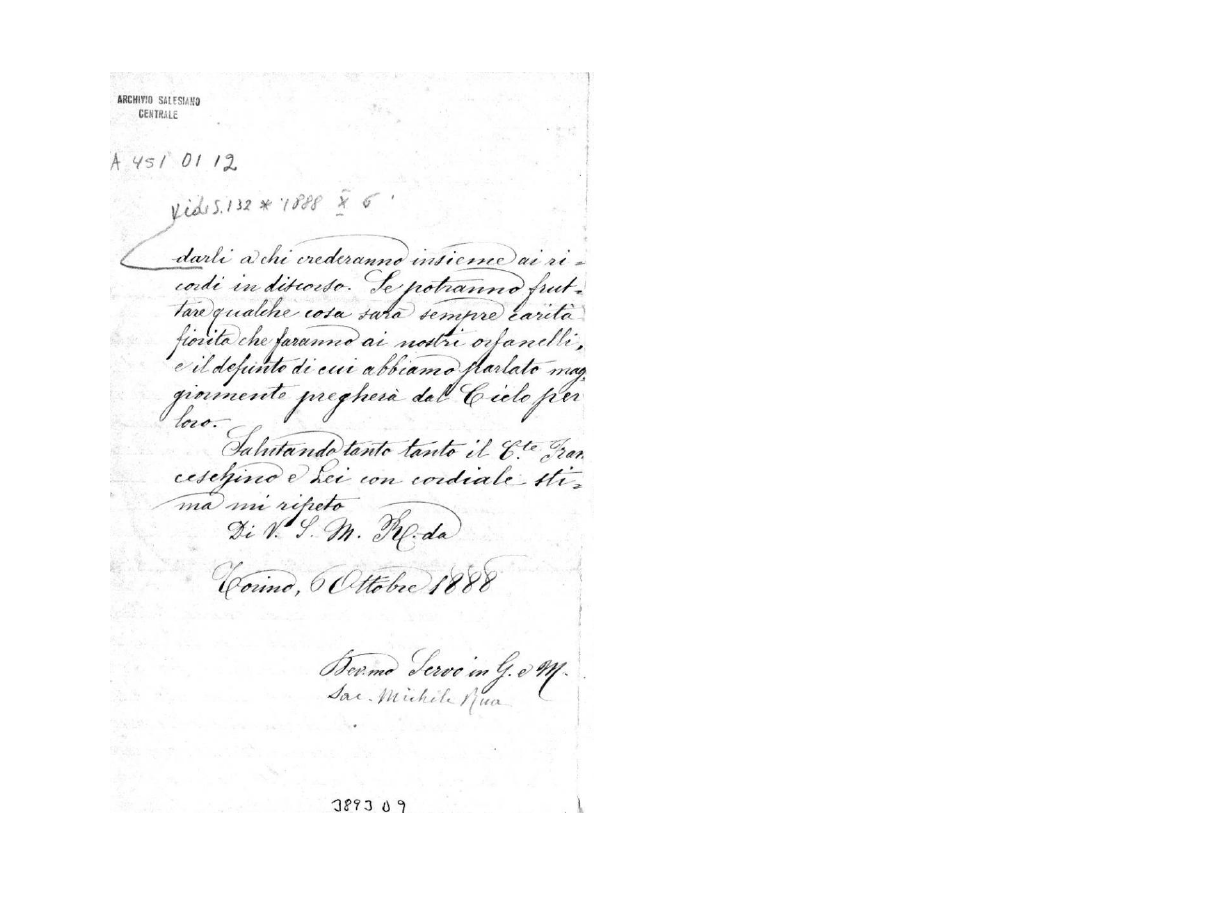 ARCHIVIO SALESIANO
CENTRALE
A 451 01 12
Vid. S. 132 * 1888 X 6
darli a chi crederanno insieme ai ri=
cordi in discorso. Se potranno frut=
tare qualche cosa sarà sempre carità
fiorita che faranno ai nostri orfanelli,
e il defunto di cui abbiamo parlato mag
giormente pregherà dal Cielo per
loro.
Salutando tanto tanto il C.te Fran
ceschino e Lei con cordiale sti=
ma mi ripeto
Di V. S. M. R.da
Torino, 6 Ottobre 1888
Devmo Servo in G. e M.
Sac. Michele Rua
3893 D 9